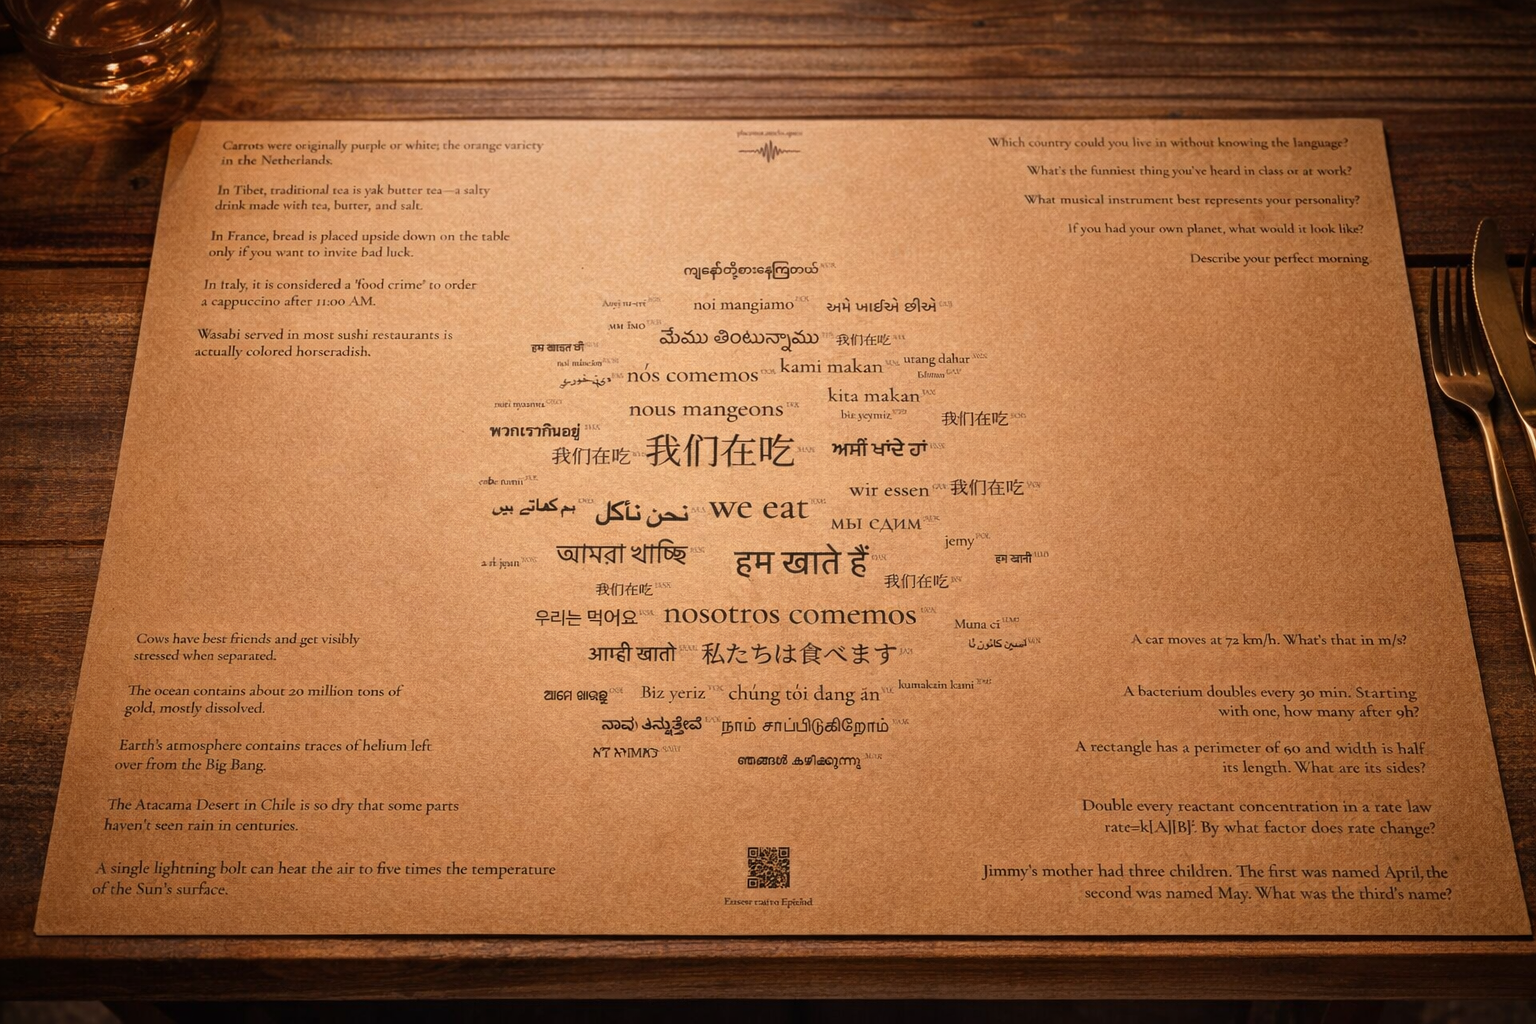 Carrots were originally purple or white; the orange variety
in the Netherlands.
In Tibet, traditional tea is yak butter tea—a salty
drink made with tea, butter, and salt.
In France, bread is placed upside down on the table
only if you want to invite bad luck.
In Italy, it is considered a 'food crime' to order
a cappuccino after 11:00 AM.
Wasabi served in most sushi restaurants is
actually colored horseradish.
Which country could you live in without knowing the language?
What's the funniest thing you've heard in class or at work?
What musical instrument best represents your personality?
If you had your own planet, what would it look like?
Describe your perfect morning.
noi mangiamo અમે ખાઈએ છીએ
మేము తింటున్నాము 我们在吃
nós comemos kami makan utang dahar
nous mangeons kita makan
biz yeymiz 我们在吃
พวกเรากินอยู่
我们在吃 我们在吃 ਅਸੀਂ ਖਾਂਦੇ ਹਾਂ
wir essen 我们在吃
ہم کھاتے ہیں نحن نأكل we eat
мы єдим
jemy
আমরা খাচ্ছি हम खाते हैं हम खानी
我们在吃 我们在吃
우리는 먹어요 nosotros comemos Muna ci
आम्ही खातो 私たちは食べます
Biz yeriz chúng tói dang ăn kumakain kami
நாம் சாப்பிடுகிறோம்
ഞങ്ങൾ കഴിക്കുന്നു
Cows have best friends and get visibly
stressed when separated.
The ocean contains about 20 million tons of
gold, mostly dissolved.
Earth's atmosphere contains traces of helium left
over from the Big Bang.
The Atacama Desert in Chile is so dry that some parts
haven't seen rain in centuries.
A single lightning bolt can heat the air to five times the temperature
of the Sun's surface.
A car moves at 72 km/h. What's that in m/s?
A bacterium doubles every 30 min. Starting
with one, how many after 9h?
A rectangle has a perimeter of 60 and width is half
its length. What are its sides?
Double every reactant concentration in a rate law
rate=k[A][B]². By what factor does rate change?
Jimmy's mother had three children. The first was named April, the
second was named May. What was the third's name?